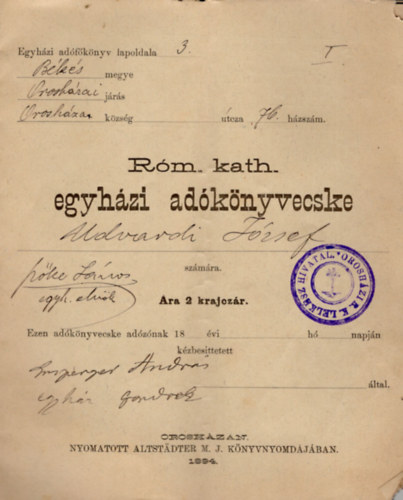 Egyházi adófőkönyv lapoldala 3. I
Békés megye
Orosházai járás
Orosháza község utcza 76 házszám.
Róm. kath.
egyházi adókönyvecske
Udvardi József
számára.
Őőke János
egyh. elnök
Ára 2 krajczár.
OROSHÁZI R. K. LELKÉSZ HIVATAL
Ezen adókönyvecske adózónak 18 évi hó napján
kézbesittetett
András
által.
egyház gondnok
OROSHÁZÁN.
NYOMATOTT ALTSTÄDTER M. J. KÖNYVNYOMDÁJÁBAN.
1894.